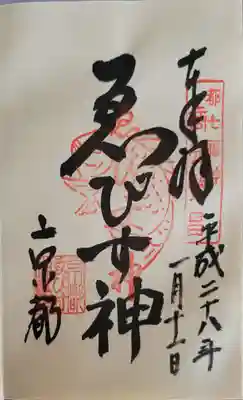 奉拝
平成二十八年
一月十一日
ゑびす神
京都